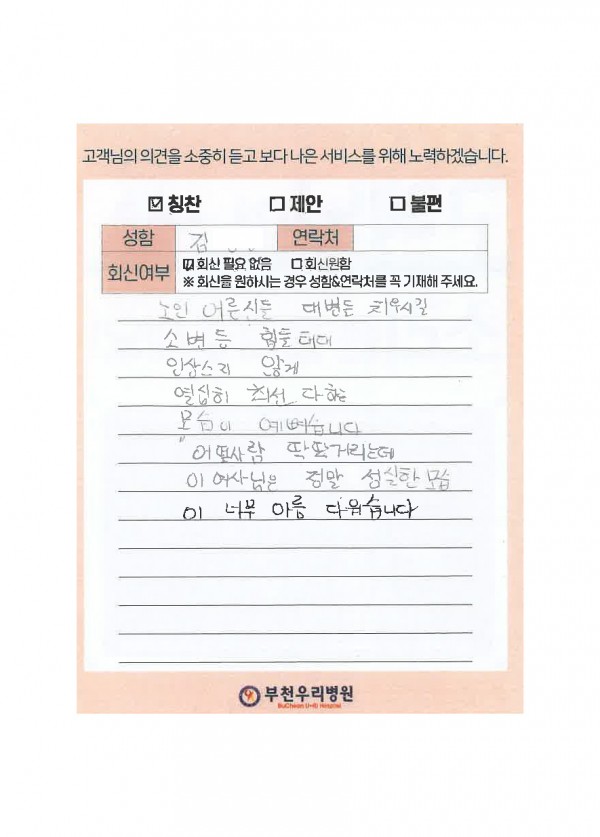 고객님의 의견을 소중히 듣고 보다 나은 서비스를 위해 노력하겠습니다.
☑ 칭찬 ☐ 제안 ☐ 불편
성함 김 연락처
회신여부 ☑ 회신 필요 없음 ☐ 회신원함
※ 회신을 원하시는 경우 성함&연락처를 꼭 기재해 주세요.
노인 어른신들 대변든 치우시길
소변등 힘들텐데
인상스지 않게
열심히 최선 다하는
모습이 예뻐습니다
어떤사람 딱딱거리는데
이 여사님은 정말 성실한 모습
이 너무 아름 다워습니다
부천우리병원
BuCheon U-Ri Hospital